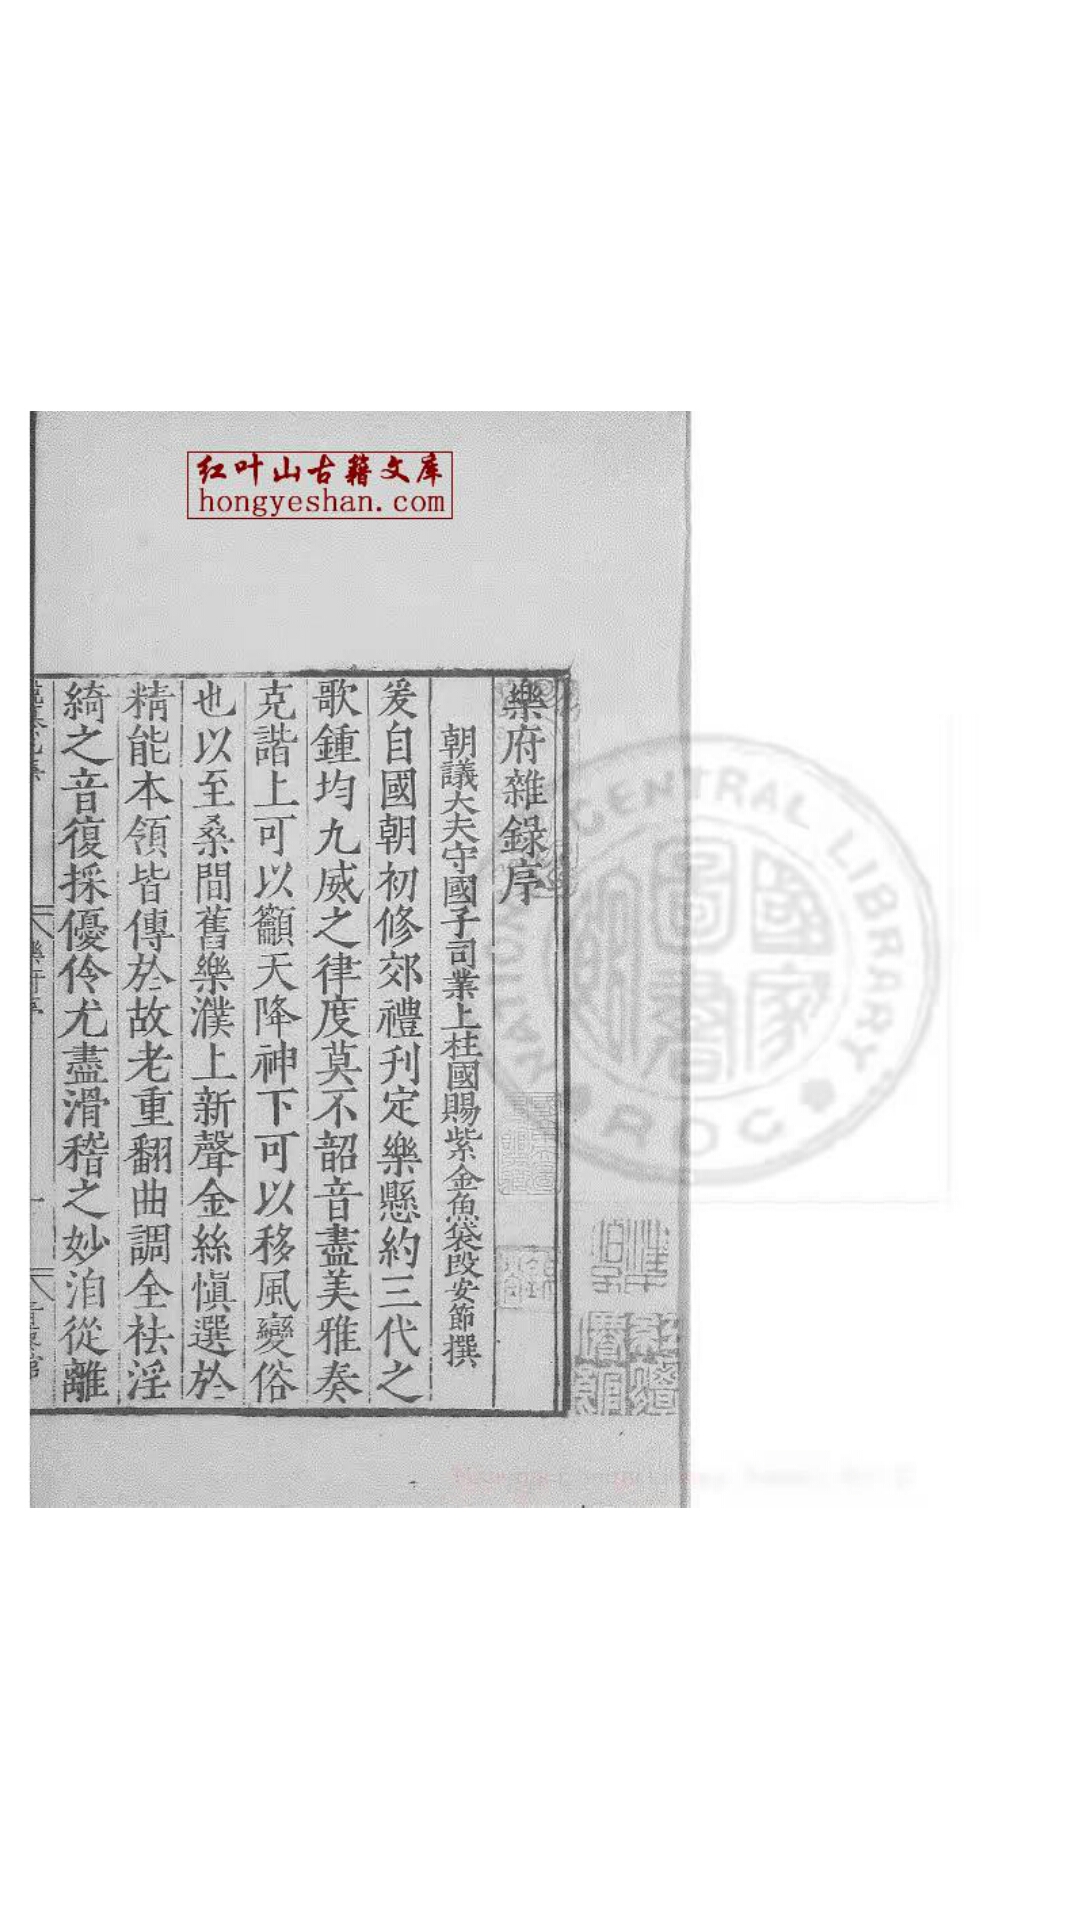 红叶山古籍文库
hongyeshan.com
樂府雜錄序
朝議大夫守國子司業上柱國賜紫金魚袋段安節撰
爰自國朝初修郊禮刋定樂懸約三代之
歌鍾均九威之律度莫不韶音盡美雅奏
克諧上可以籲天降神下可以移風變俗
也以至桑間舊樂濮上新聲金絲愼選於
精能本領皆傳於故老重翻曲調全祛淫
綺之音復採優伶尤盡滑稽之妙洎從離
CENTRAL LIBRARY
ROC
國家圖書